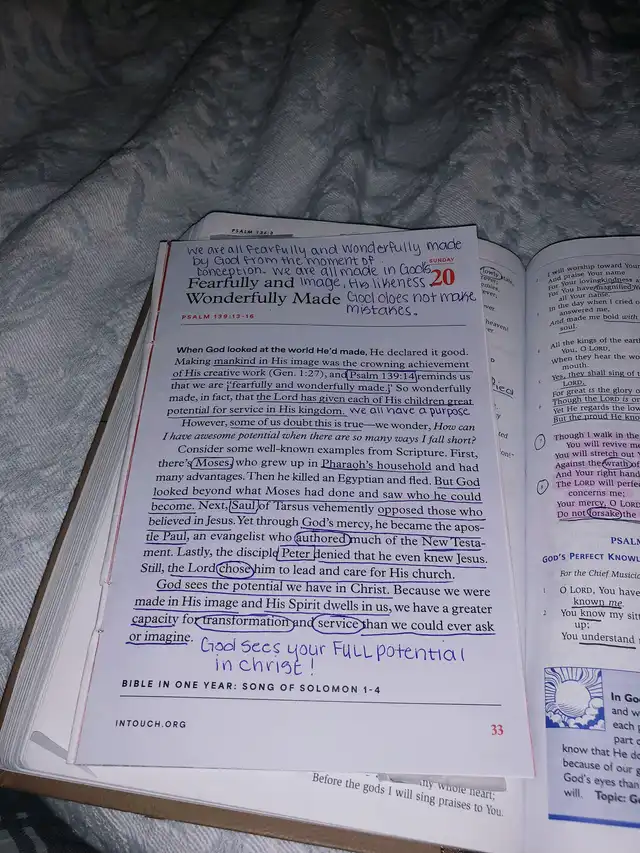 PSALM 135:2
we are all fearfully and wonderfully made
by God from the moment of
conception. we are all made in God's
image, His likeness.
God does not make
mistakes.
SUNDAY
20
Fearfully and
Wonderfully Made
PSALM 139:13-16
When God looked at the world He'd made, He declared it good.
Making mankind in His image was the crowning achievement
of His creative work (Gen. 1:27), and Psalm 139:14 reminds us
that we are "fearfully and wonderfully made." So wonderfully
made, in fact, that the Lord has given each of His children great
potential for service in His kingdom. we all have a purpose
However, some of us doubt this is true—we wonder, How can
I have awesome potential when there are so many ways I fall short?
Consider some well-known examples from Scripture. First,
there's Moses, who grew up in Pharaoh's household and had
many advantages. Then he killed an Egyptian and fled. But God
looked beyond what Moses had done and saw who he could
become. Next, Saul of Tarsus vehemently opposed those who
believed in Jesus. Yet through God's mercy, he became the apos-
tle Paul, an evangelist who authored much of the New Testa-
ment. Lastly, the disciple Peter denied that he even knew Jesus.
Still, the Lord chose him to lead and care for His church.
God sees the potential we have in Christ. Because we were
made in His image and His Spirit dwells in us, we have a greater
capacity for transformation and service than we could ever ask
or imagine.
God sees your FULL potential
in Christ!
BIBLE IN ONE YEAR: SONG OF SOLOMON 1-4
INTOUCH.ORG
33
my whole heart;
Before the gods I will sing praises to You.
I will worship toward Your
And praise Your name
For Your lovingkindness
For You have magnified
all Your name.
In the day when I cried
answered me,
And made me bold with
soul.
All the kings of the earth
You, O LORD,
When they hear the
mouth.
Yes, they shall sing of
LORD,
For great is the glory
Though the LORD is on
Yet He regards the
But the proud He
Though I walk in the
You will revive me
You will stretch out
Against the wrath of
And Your right hand
The LORD will perfect
concerns me;
Your mercy, O LORD
Do not forsake the
PSALM
GOD'S PERFECT
For the Chief Musician
1 O LORD, You have
known me.
2 You know my
up;
You understand
In God
and
each
part
know that He
because of our
God's eyes than
will. Topic: